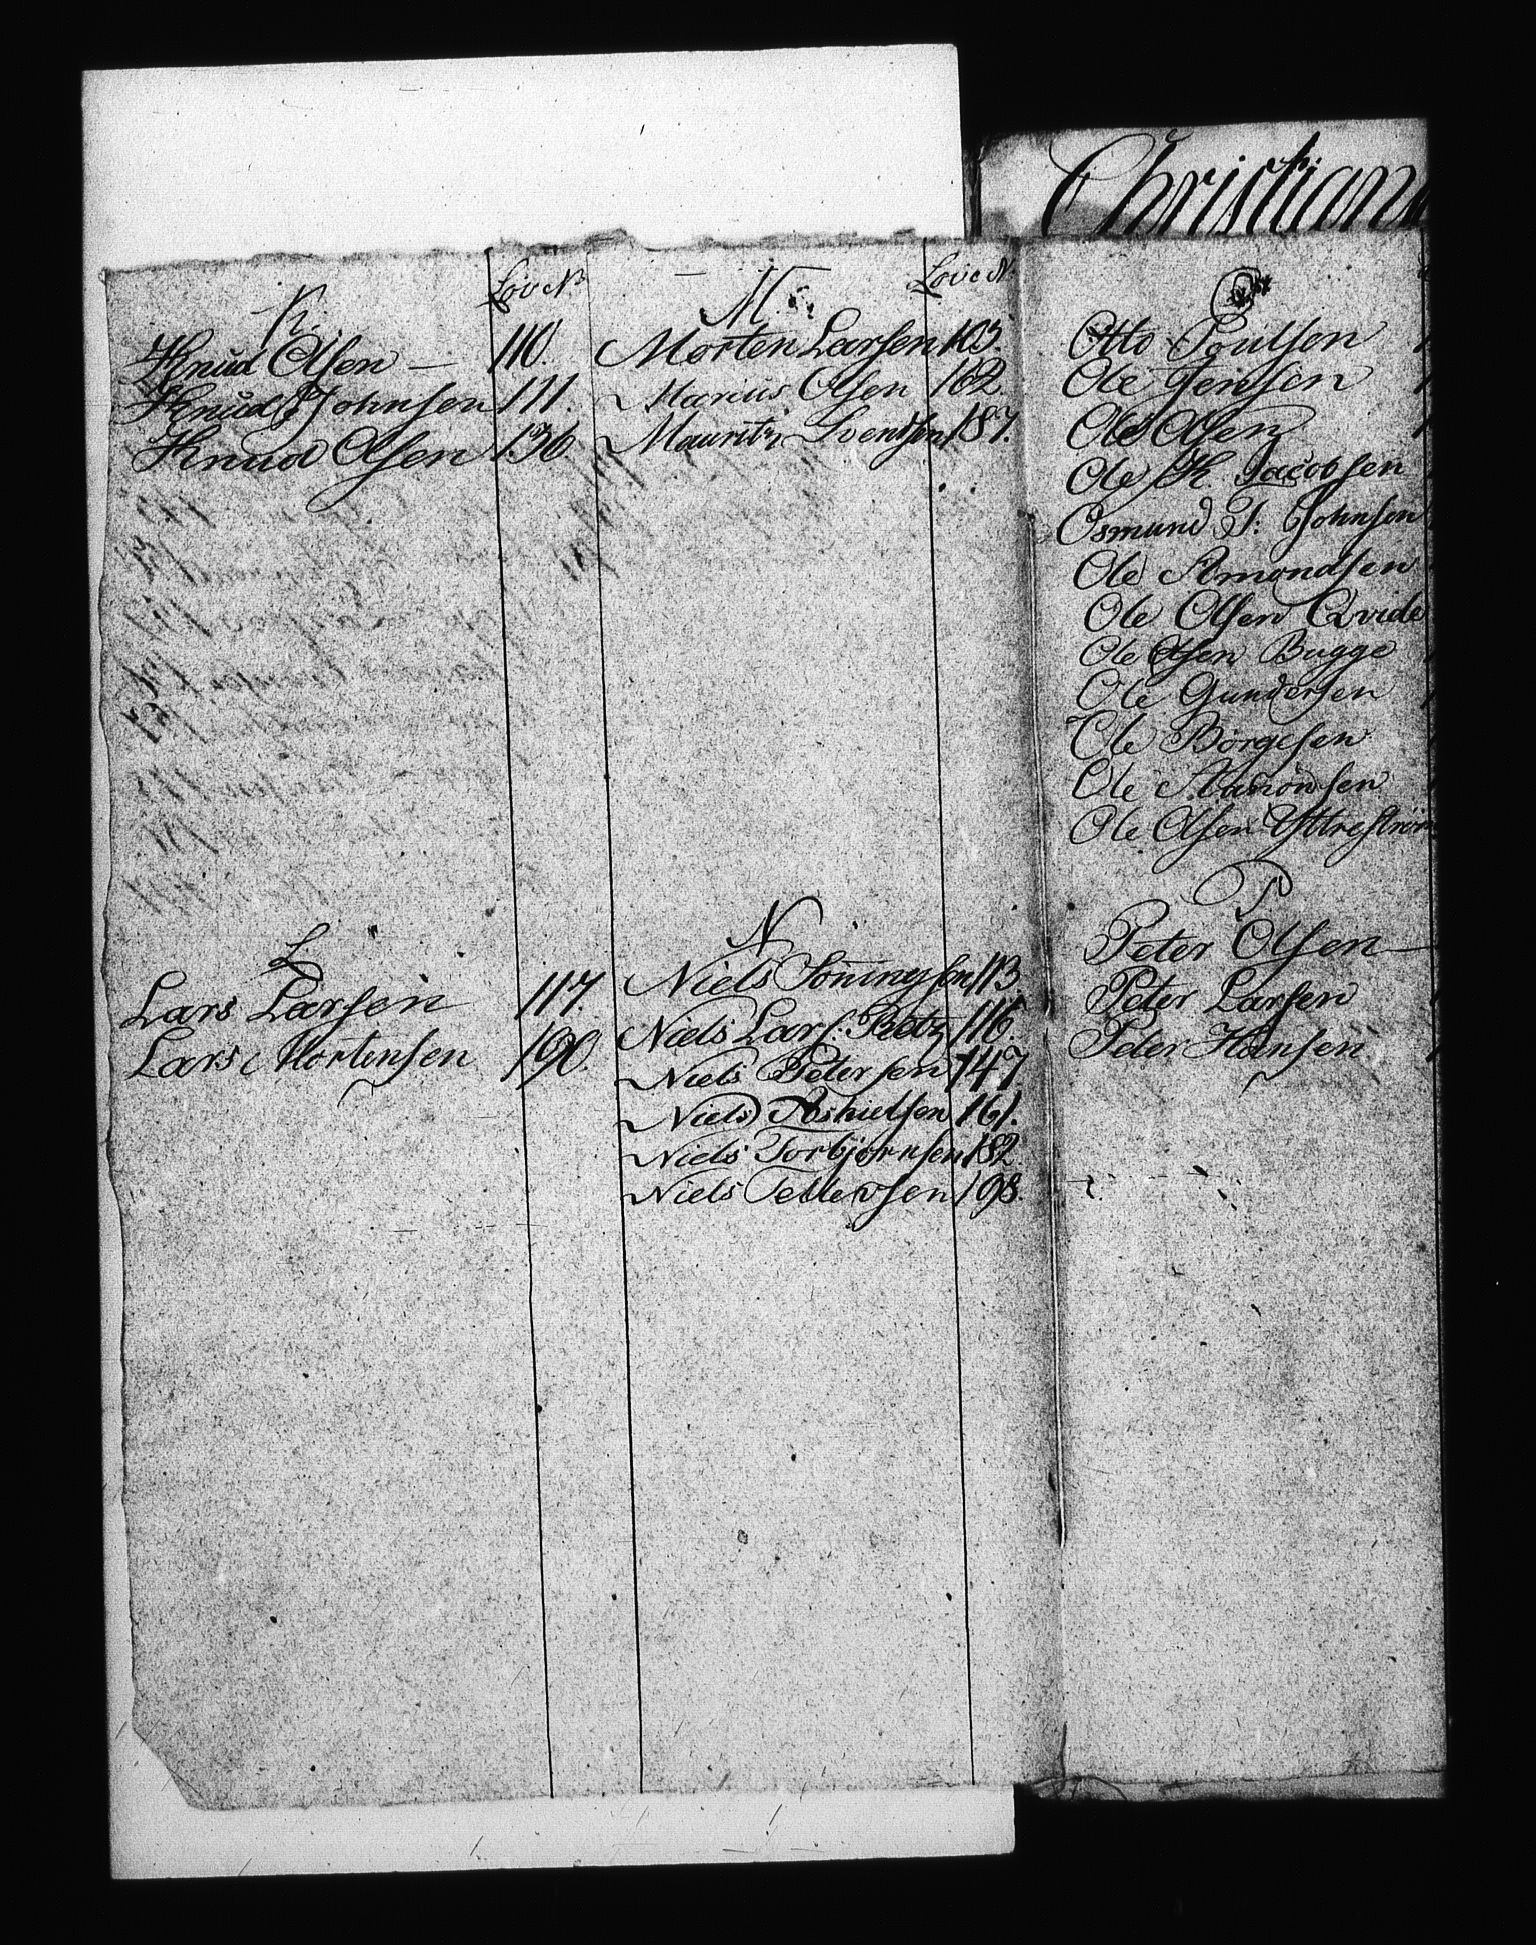 Christian
K.
Løv No
Knud Olsen — 110.
Knud Johnsen 111.
Knud Olsen 136
L
Lars Larsen 117.
Lars Mortensen 190.
M.
Løv N.
Morten Larsen 103.
Marius Olsen 162.
Mauritz Svendsen 187.
N
Niels 113
Niels Lars. 116.
Niels Petersen 147
Niels Askielsen 161.
Niels Torbjørnsen 182.
Niels Tellevsen 198.
O
Otto Poulsen
Ole Jensen
Ole Olsen
Ole H. Jacobsen
Osmund T. Johnsen
Ole Amondsen
Ole Olsen Qvide
Ole Olsen Bugge
Ole Gundersen
Ole Børgesen
Ole Aamondsen
Ole Olsen Yttrestrøm
P
Peter Olsen —
Peter Larsen
Peter Hansen